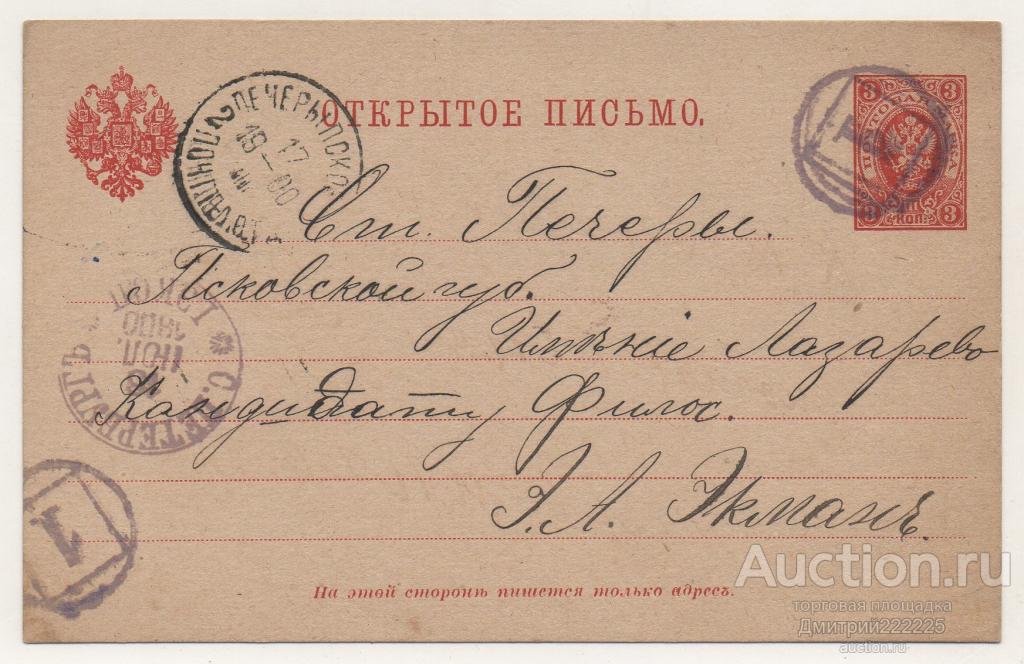 ОТКРЫТОЕ ПИСЬМО.
3 3
ПОЧТОВАЯ МАРКА
3 КОП. 3
2 ПЕЧЕРЫ ПСКОВ.
17
1900
Ст. Печеры.
Псковской губ.
Имѣніе Лазарево
Кандидату Филос.
Э. А. Экманъ.
С. ПЕТЕРБУРГЪ
ІЮЛ.
1900
1
На этой сторонѣ пишется только адресъ.
Auction.ru
торговая площадка
Дмитрий222225
auction.ru